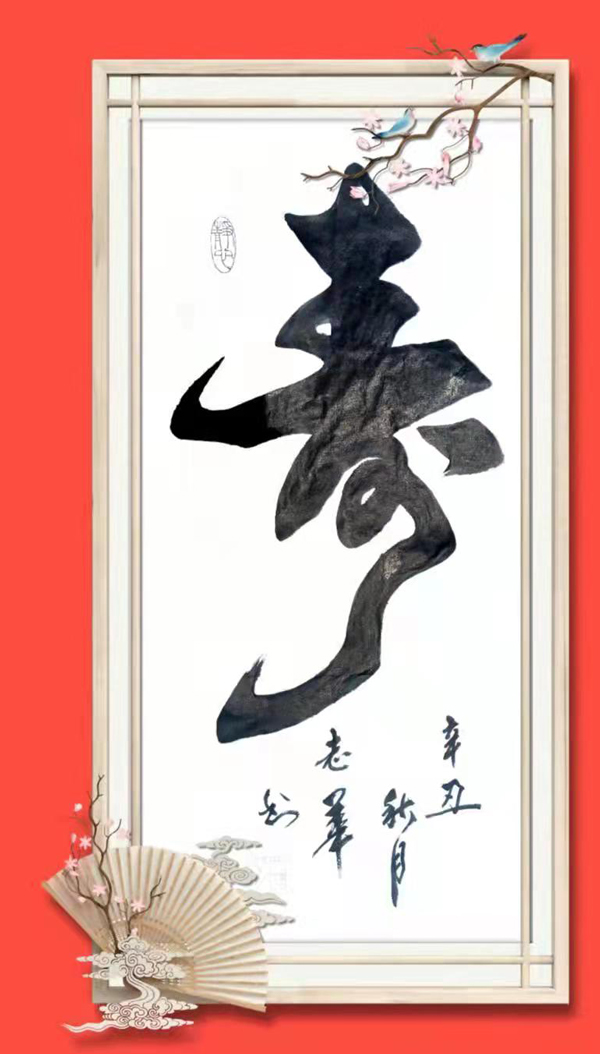 寿
辛丑
秋月
志華